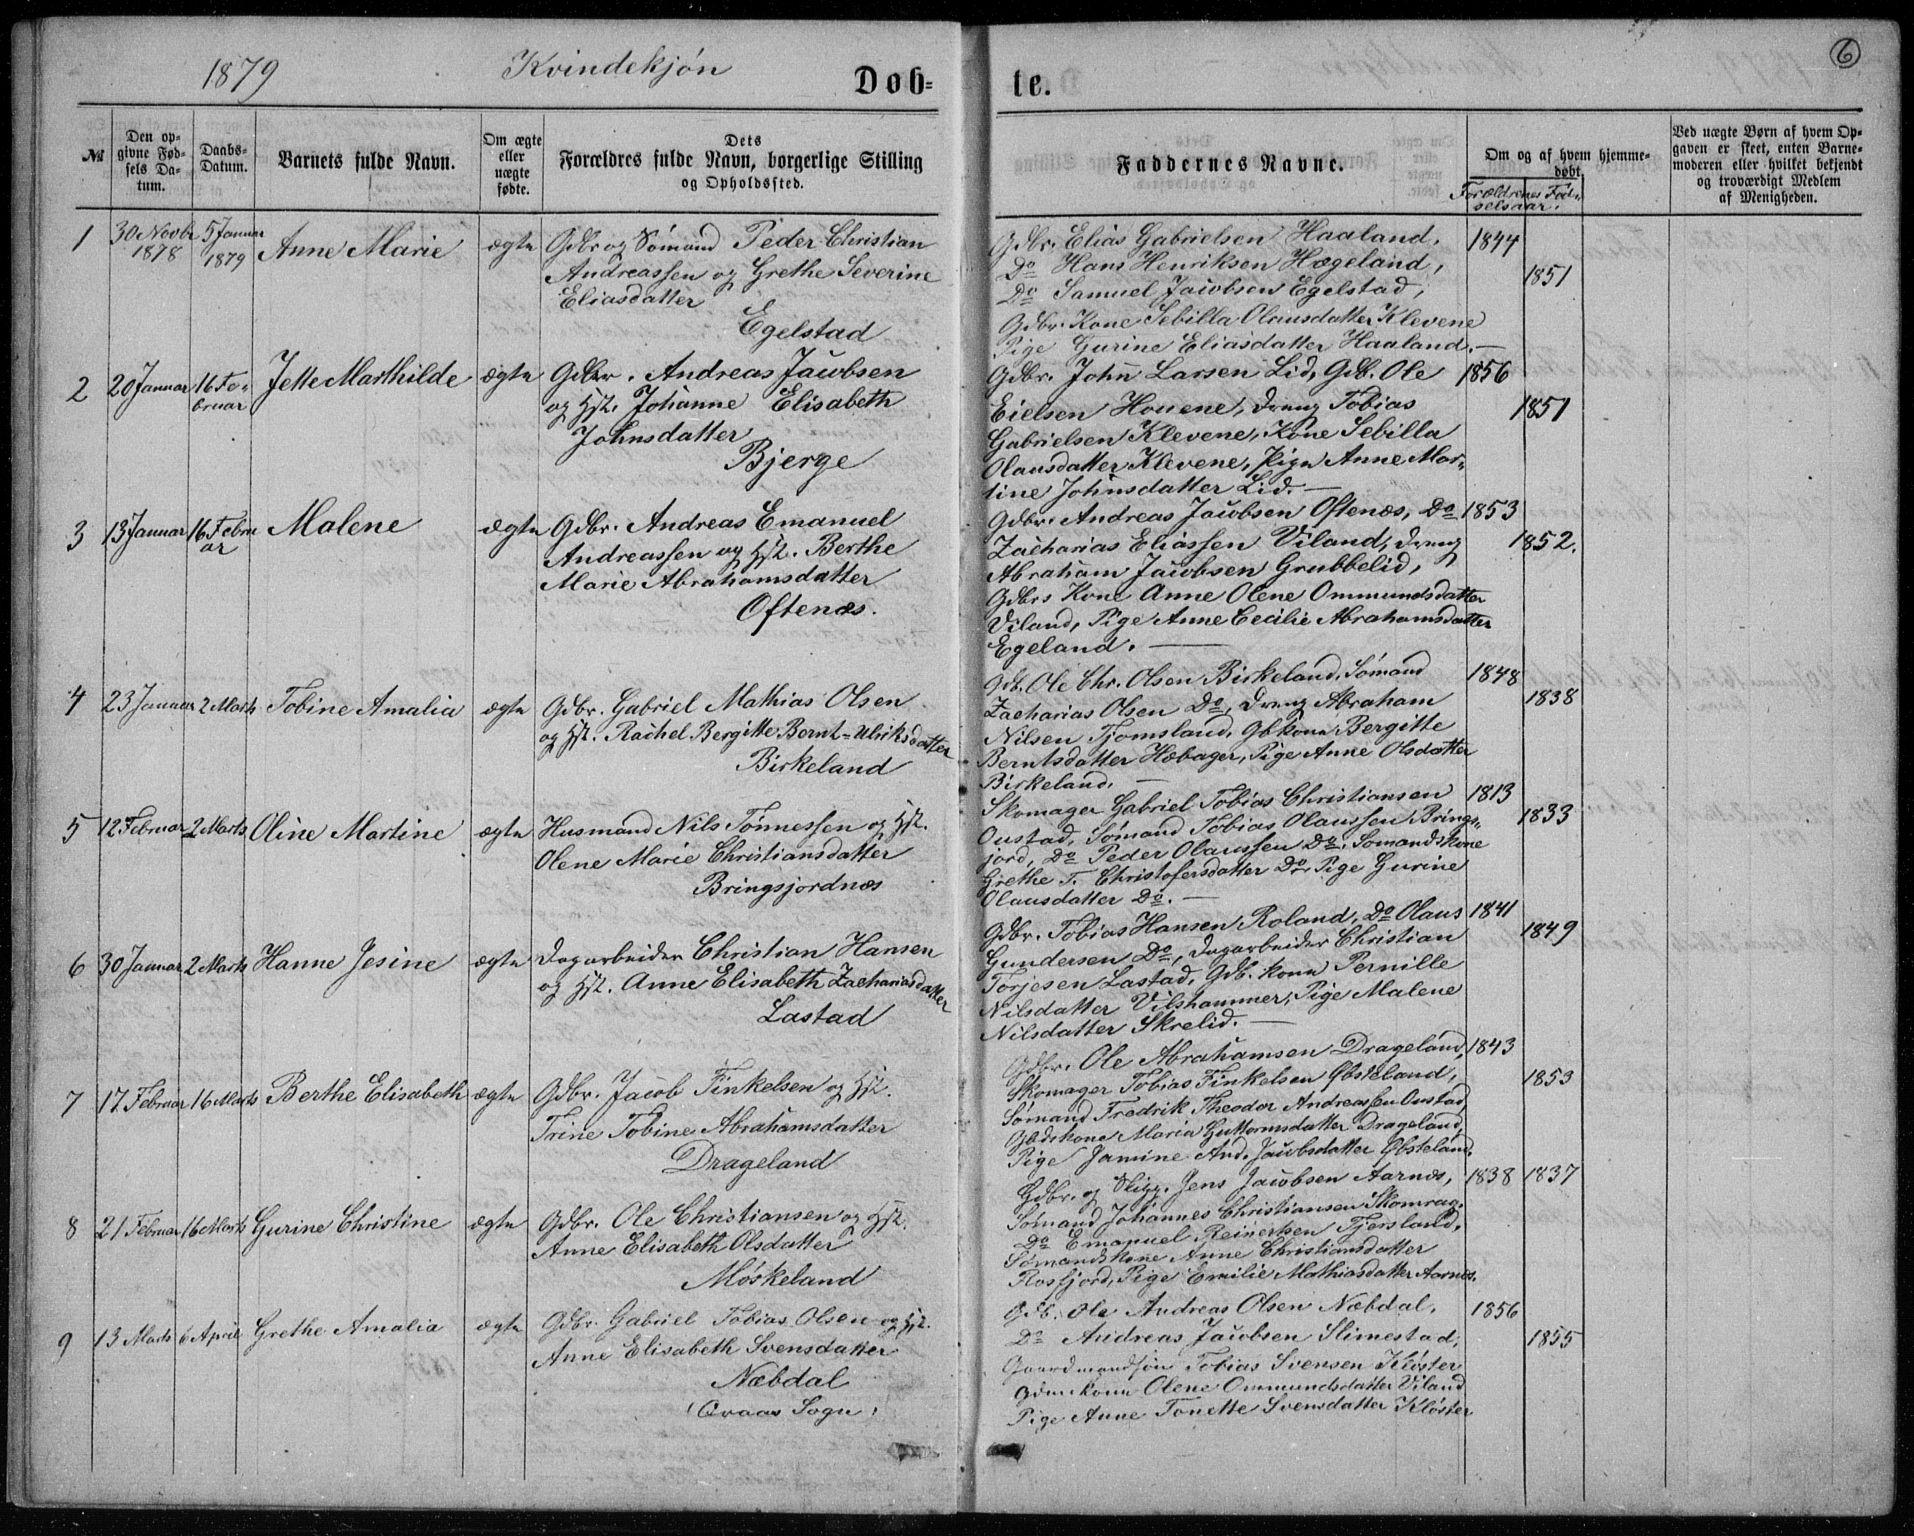 6
1879 Kvindekjøn
Døb-
te.
№
Den op-
givne Fød-
sels Da-
tum.
Daabs-
Datum.
Barnets fulde Navn.
Om ægte
eller
uægte
fødte.
Dets
Forældres fulde Navn, borgerlige Stilling
og Opholdssted.
Faddernes Navne.
Om og af hvem hjemme-
døbt.
Forældrenes Fød-
selsaar.
Ved uægte Børn af hvem Op-
gaven er skeet, enten Barne-
moderen eller hvilket bekjendt
og troværdigt Medlem
af Menigheden.
1 30 Novbr 1878 5 Januar 1879 Anne Marie ægte
Gdbr og Sømand Peder Christian
Andreassen og Grethe Severine
Eliasdatter
Egelstad
Gdbr. Elias Gabrielsen Haaland, 1844
Do Hans Henriksen Hægeland, 1851
Do Samuel Jacobsen Egelstad,
Gdbr. Kone Sebilla Olausdatter Klevene
Pige Gurine Eliasdatter Haaland.
2 20 Januar 16 Februar Jette Marthilde ægte
Gdbr. Andreas Jacobsen
og Hst. Johanne Elisabeth
Johnsdatter
Bjerge
Gdbr. John Larsen Lid, Gdb. Ole 1856
Eielsen Houene, Dreng Tobias 1851
Gabrielsen Klevene, Kone Sebilla
Olausdatter Klevene, Pige Anne Mar-
tine Johnsdatter Lid.
3 13 Januar 16 Februar Malene ægte
Gdbr. Andreas Emanuel
Andreassen og Hst. Berthe
Marie Abrahamsdatter
Oftenæs.
Gdbr. Andreas Jacobsen Oftenæs, Do 1853
Zacharias Eliassen Viland, Dreng 1852.
Abraham Jacobsen Grubbelid,
Gdbrs Kone Anne Olene Ommundsdatter
Viland, Pige Anne Cecilie Abrahamsdatter
Egeland.
4 23 Januar 2 Marts Tobine Amalia ægte
Gdbr. Gabriel Mathias Olsen
og Hst. Rachel Bergitte Bernt-Ulriksdatter
Birkeland
Gdb. Ole Chr. Olsen Birkeland, Sømand 1848
Zacharias Olsen Do, Dreng Abraham 1838
Nilsen Tjomsland, Gbkone Bergitte
Berntsdatter Hæbager, Pige Anne Olsdatter
Birkeland.
5 12 Februar 2 Marts Oline Martine ægte
Husmand Nils Tønnessen og Hst.
Olene Marie Christiansdatter
Bringsjordnæs
Skomager Gabriel Tobias Christiansen 1813
Oustad, Sømand Tobias Olaussen Brings- 1833
jord, Do Peder Olaussen Do, Sømandskone
Grethe T. Christofersdatter Do, Pige Gurine
Olausdatter Do.
6 30 Januar 2 Marts Hanne Jesine ægte
Dagarbeider Christian Hansen
og Hst. Anne Elisabeth Zachariasdatter
Lastad
Gdbr. Tobias Hansen Roland, Do Olaus 1841
Gundersen Do, Dagarbeider Christian 1849
Torjesen Lastad, Gdb. kone Pernille
Nilsdatter Vilshammer, Pige Malene
Nilsdatter Skrelid.
7 17 Februar 16 Marts Berthe Elisabeth ægte
Gdbr. Jacob Finkelsen og Hst.
Trine Tobine Abrahamsdatter
Drageland
Gdbr. Ole Abrahamsen Drageland, 1843
Skomager Tobias Finkelsen Øbsteland, 1853
Sømand Fredrik Theodor Andreassen Oustad,
Gbdskone Maria Guttormsdatter Drageland,
Pige Jamine And. Jacobsdatter Øbsteland.
8 21 Februar 16 Marts Gurine Christine ægte
Gdbr. Ole Christiansen og Hst.
Anne Elisabeth Olsdatter
Møskeland
Gdbr. og Jens Jacobsen Aarnæs, 1838 1837
Sømand Johannes Christiansen Skomrag,
Do Emanuel Reinertsen Tjersland,
Sømandskone Anne Christiansdatter
Rosfjord, Pige Emilie Mathiasdatter Aarnæs.
9 13 Marts 6 April Grethe Amalia ægte
Gdbr. Gabriel Tobias Olsen og Hst.
Anne Elisabeth Svensdatter
Næbdal
Qvaas Sogn
Gdb. Ole Andreas Olsen Næbdal, 1856
Do Andreas Jacobsen Slimestad, 1855
Gaardmandsøn Tobias Svensen Kloster
Gdmkone Olene Ommundsdatter Viland
Pige Anne Tonette Svensdatter Kloster